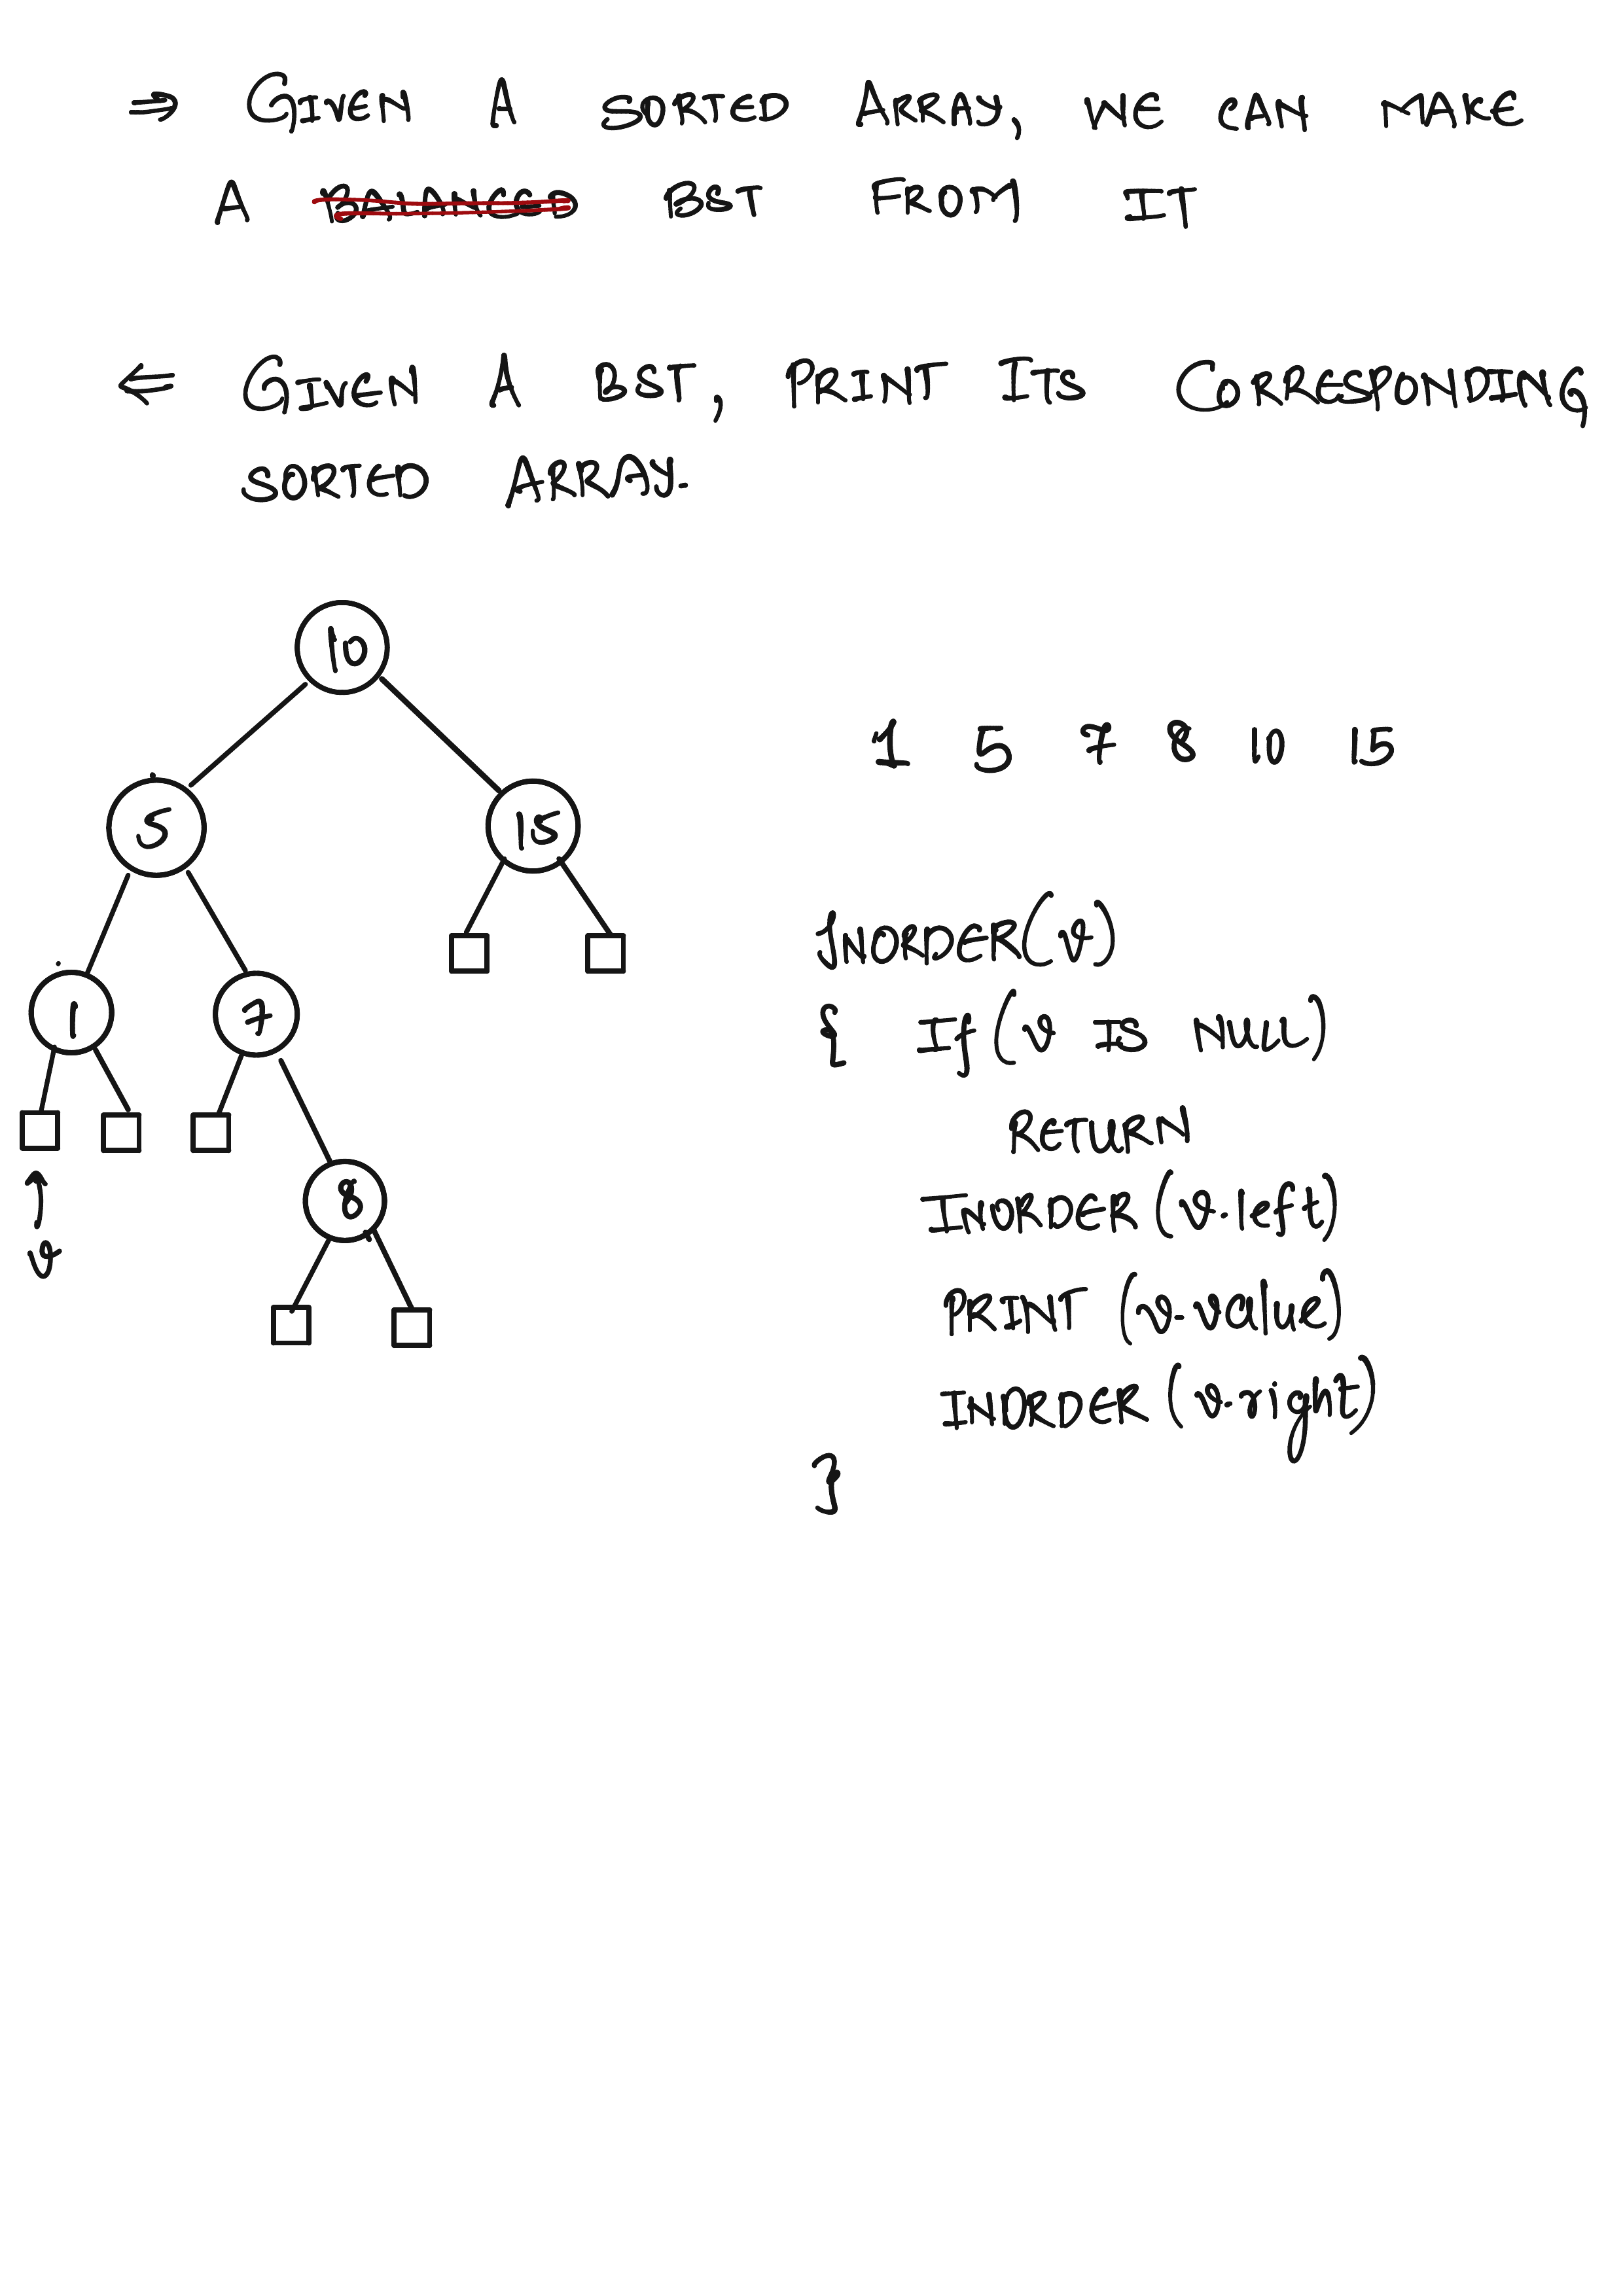 ⇒ GIVEN A SORTED ARRAY, WE CAN MAKE
A BALANCED BST FROM IT
⇐ GIVEN A BST, PRINT ITS CORRESPONDING
SORTED ARRAY.
10
5 15
1 7
8
v
1 5 7 8 10 15
INORDER(v)
{ If (v IS NULL)
RETURN
INORDER (v.left)
PRINT (v.value)
INORDER (v.right)
}